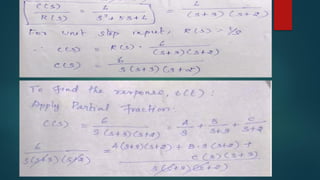 C(S)/R(S) = 6/(S²+5S+6) = 6/((S+3)(S+2))
For unit step input, R(S) = 1/S
∴ C(S) = R(S) · 6/((S+3)(S+2))
C(S) = 6/(S(S+3)(S+2))
To find the response, c(t) :
Apply Partial fraction.
C(S) = 6/(S(S+3)(S+2)) = A/S + B/(S+3) + C/(S+2)
6/(S(S+3)(S+2)) = (A(S+3)(S+2) + B·S(S+2) + C(S)(S+3))/(S(S+3)(S+2))